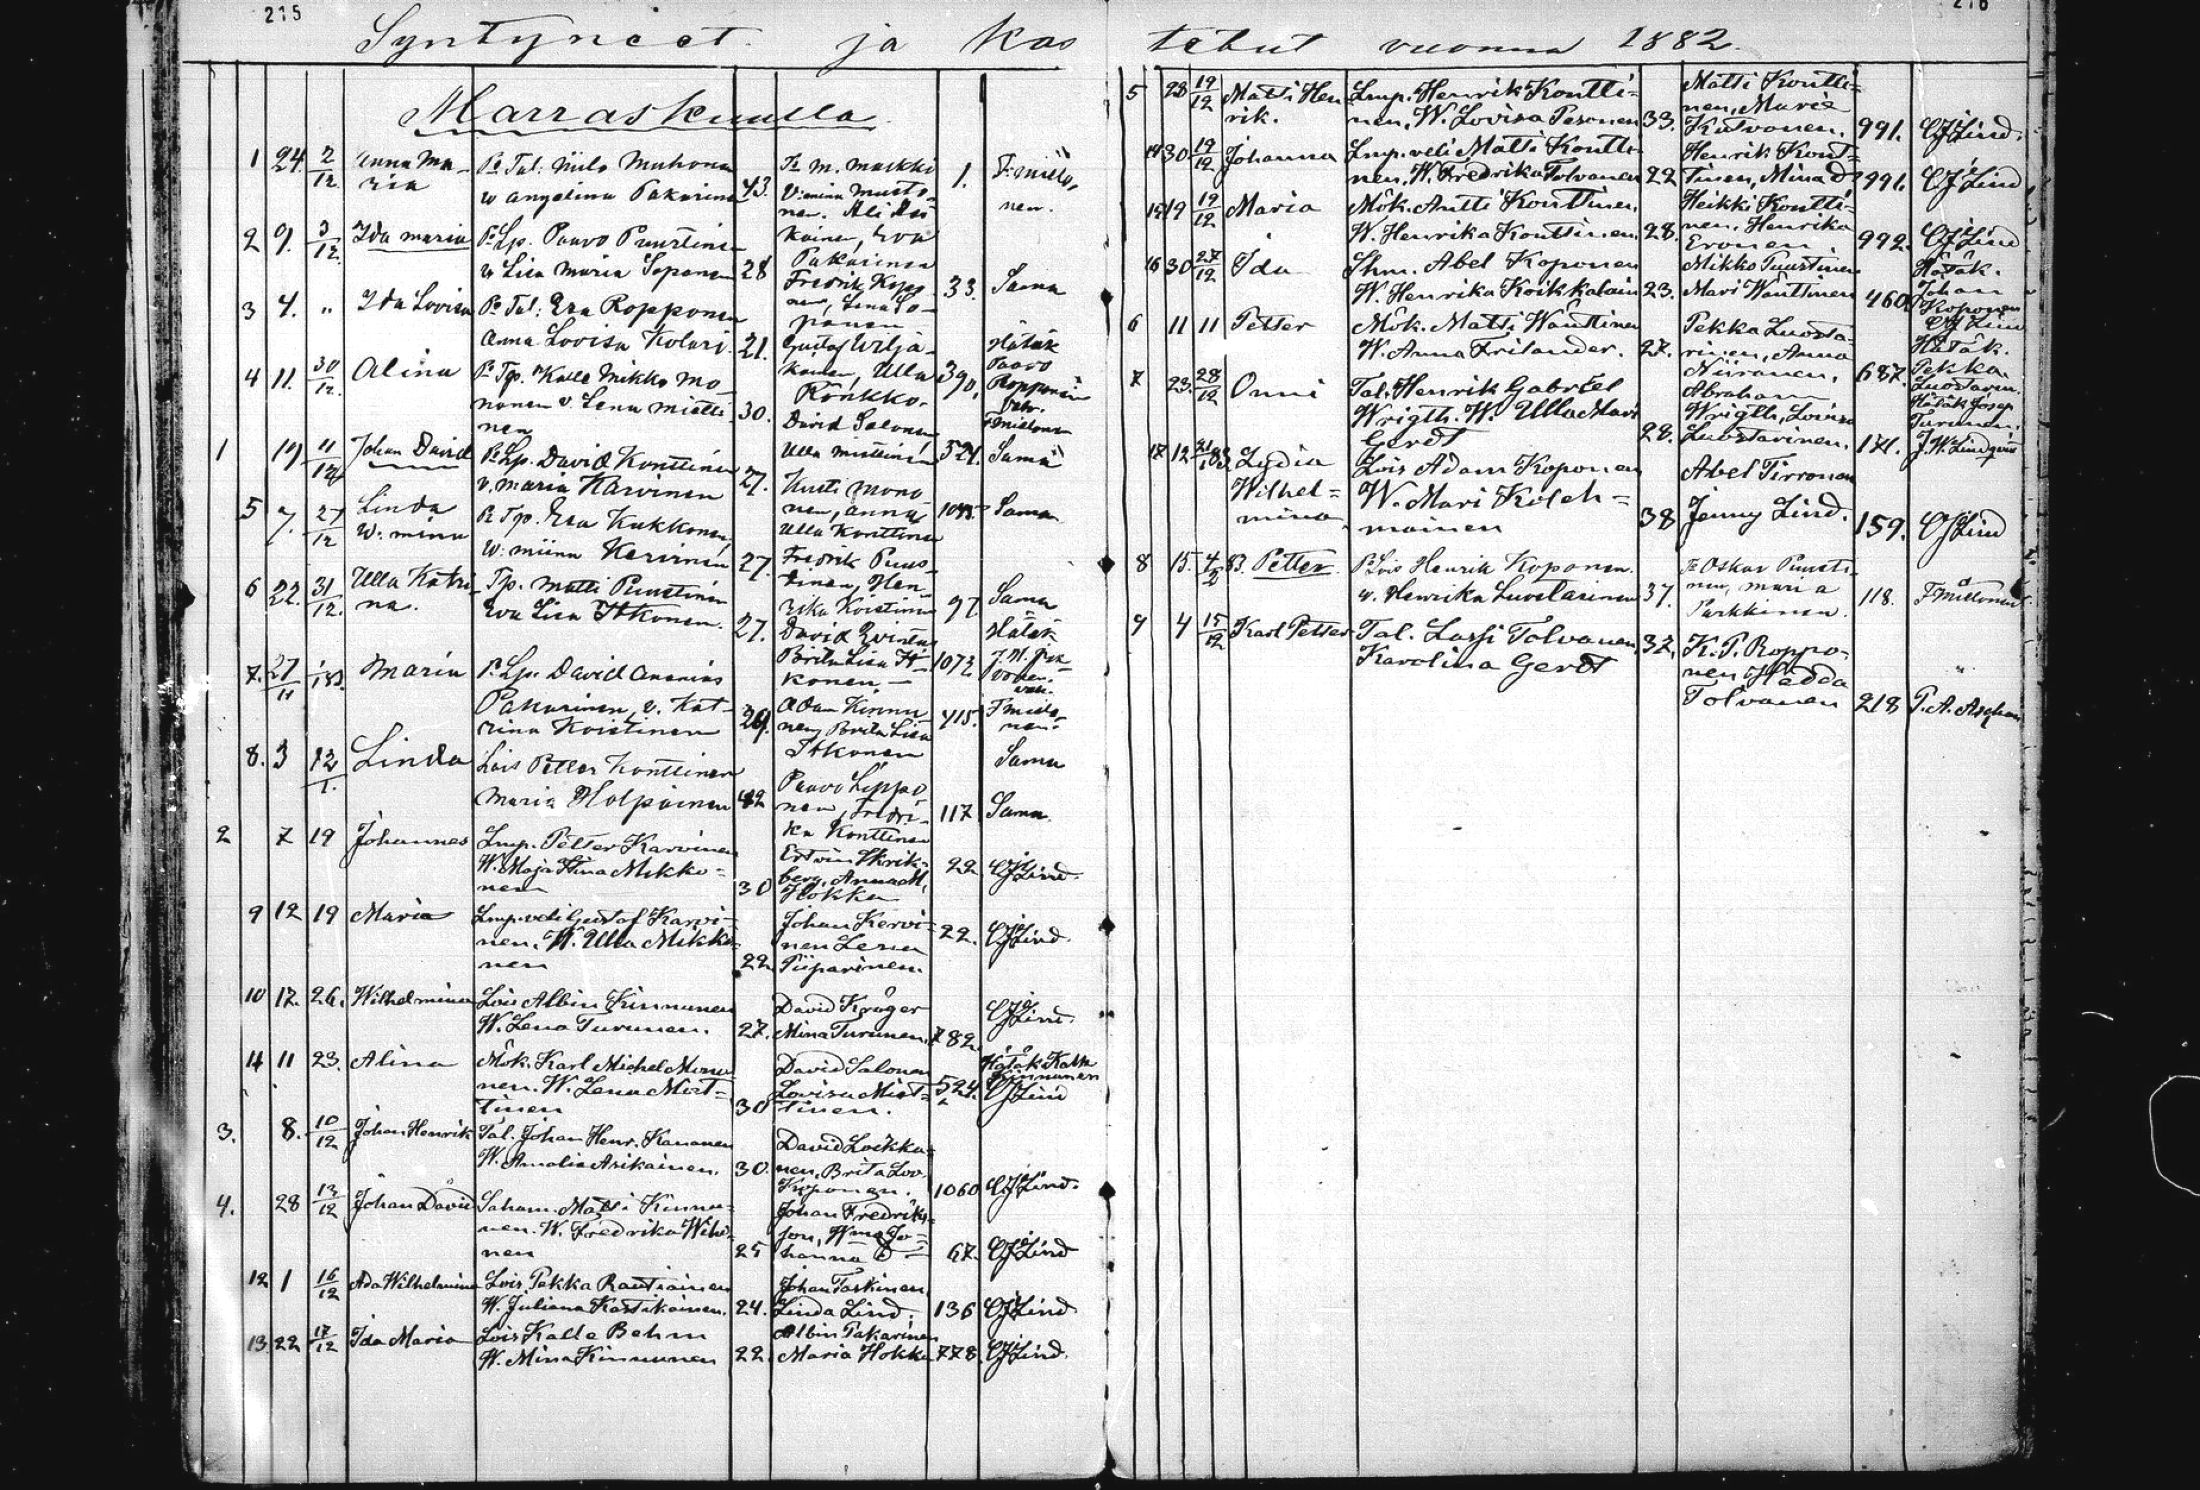 215
Syntyneet ja kas
Marraskuulla
1 24. 2/12 Anna Ma-
ria
w Angelina Pakarinen 43. 1.
nen.
2 9. 3/12 Ida Maria Lp. Paavo Puustinen
w Lisa Maria Soponen 28 Pakarinen
Fredrik Kopo-
nen, Lena So-
ponen 33. Sama
3 4. " Ida Lovisa Tal: Esa Ropponen
Anna Lovisa Kolari 21. Gustaf Wilja-
kainen, Ulla
Rönkkö. 390. Hätäk
Paavo
Ropponen
4 11. 30/12 Alina Kalle Mikko Mo-
nonen v. Lena Mietti-
nen 30. David Salonen
Ulla Miettinen 524. Sama
1 19 11/12 Johan David Lp. David Konttinen
v. Maria Karvinen 27. Kusti Mono-
nen, Anna
Ulla Konttinen Sama
5 7. 27/12 Linda
W: mina Esa Kukkonen
W: miina Kervinen 27. Fredrik Puus-
tinen, Hen-
rika Koistinen 97. Sama
6 22. 31/12. Ulla Katri-
na. Tp. Matti Puustinen
Eva Lisa Itkonen. 27. David
Brita Lisa It-
konen 1073 Hätäk
7. 27/11 Maria Lp. David Ananias
Pakarinen, v. Kat-
rina Koistinen 29. Adam Kinnu-
nen, Brita Lisa
Itkonen 415.
Sama
8. 3 12/1. Linda Lois Petter Konttinen
Maria Holpainen 42 Paavo Leppo-
nen, Fredri-
ka Konttinen 117 Sama
2 7 19 Johannes Lmp. Petter Karvinen
W. Maja Stina Mikko-
nen 30 Anna M.
Hokka 22 CJLind.
9 12 19 Maria Lmp.veli Gustaf Karvi-
nen. W. Ulla Mikko-
nen 22 Johan Kervi-
nen Lena
Piiparinen. 22. CJLind.
10 17. 26. Wilhelmina Lois Albin Kinnunen
W. Lena Turunen. 27. David Kröger
Mina Turunen. 782. CJLind.
11 11 23. Alina Mök. Karl Michel Mono-
nen. W. Lena Miet-
tinen 30 David Salonen
Lovisa Miet-
tinen. 524. Hätäk Kalle
Kinnunen
CJLind
3. 8. 10/12 Johan Henrik Tal. Johan Henr. Kananen
W. Amalia Asikainen. 30. David Loikka-
nen, Brita Lov.
Koponen. 1060 CJLind.
4. 28 13/12 Johan David Matti Kinnu-
nen. W. Fredrika
nen 25 Johan Fredriks-
son, Wma Jo-
hanna 67. CJLind
12 1 16/12 Ada Wilhelmina Lois. Pekka Rautiainen
W. Juliana Kastikainen. 24. Johan Taskinen
Linda Lind. 136 CJLind
13. 22 17/12 Ida Maria Lois Kalle Behm
W. Mina Kinnunen 22. Albin Pakarinen
Maria Hokka 778. CJLind.
216
tetut vuonna 1882.
5 28 19/12 Matti Hen-
rik. Lmp. Henrik Kontti-
nen, W. Lovisa Pesonen 33. Matti Kontti-
nen, Maria
Kutvonen. 991. CJLind.
14 30 19/12 Johanna Lmp.veli Matti Kontti-
nen, W. Fredrika Tolvanen 22 Henrik Kont-
tinen, Mina 991. CJLind
15 19 19/12 Maria Mök. Antti Konttinen,
W. Henrika Konttinen. 28. Heikki Kontti-
nen, Henrika
Eronen 992. CJLind
16 30 27/12 Ida Abel Koponen
W. Henrika Koikkalain 23. Mikko Puustinen
Mari Wänttinen 460. Hätäk.
Johan
Koponen
CJLind
6 11 11 Petter Mök. Matti Wänttinen
W. Anna Frilander. 27. Pekka Luosta-
rinen, Anna
Niiranen, 687. Hätäk.
Pekka
Luostarin.
7 23. 28/12 Onni Tal. Henrik Gabriel
Wrigth. W. Ulla Mari
Gerdt 28. Abraham
Wrigth, Lovisa
Luostarinen. 171. Hätäk Josep
Turunen.
J.W. Lindqvist
17 12 Lydia
Wilhel-
mina Lois Adam Koponen
W. Mari Koleh-
mainen 38 Abel Tirronen
Jenny Lind. 159. CJLind
8 15. 4/2 83. Petter Lois Henrik Koponen.
w. Henrika Luostarinen 37. Oskar Puusti-
nen, Maria
Parkkinen. 118.
9 4 15/12 Karl Petter Tal. Lassi Tolvanen
Karolina Gerdt 32. K. P. Roppo-
nen, Hedda
Tolvanen 218